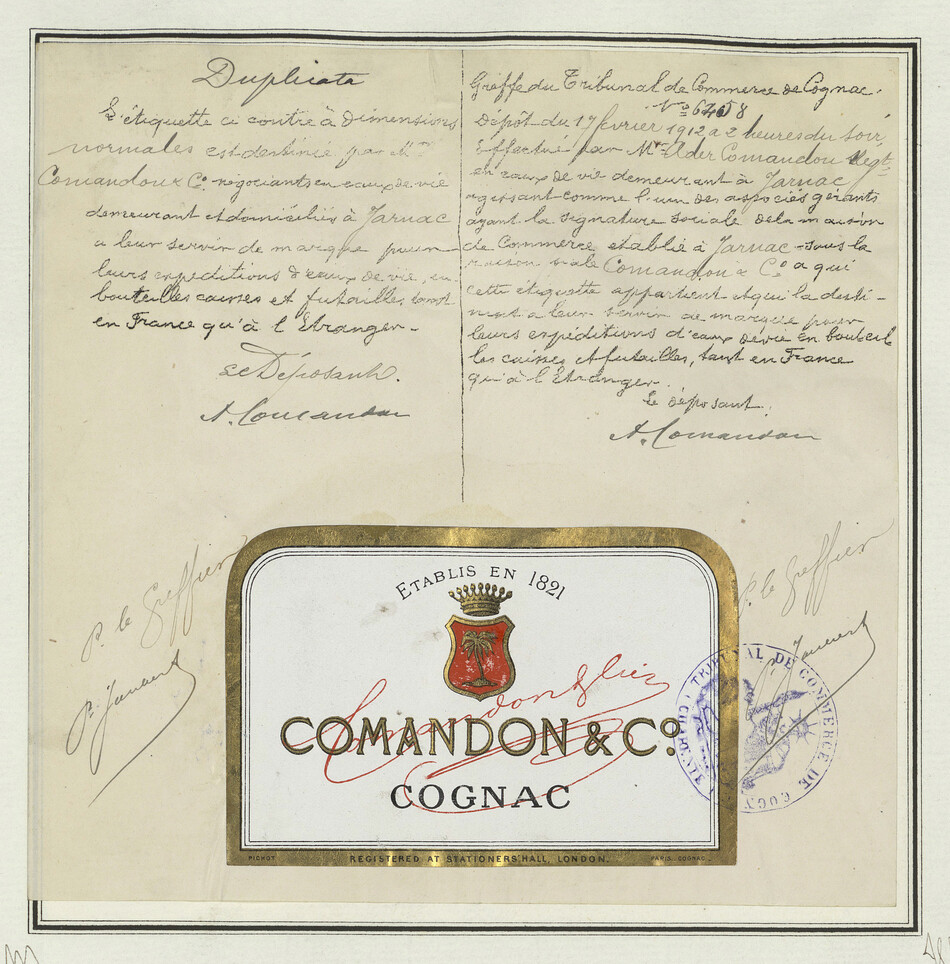 Duplicata
L'étiquette ci contre à dimensions
normales est destinée, par Mrs
Comandon & Co. négociants en eaux de vie
demeurant et domiciliés à Jarnac
a leur servir de marque pour
leurs expéditions d'eaux de vie, en
bouteilles caisses et futailles, tant
en France qu'à l'Etranger.
Le Déposant.
A. Comandon
Greffe du Tribunal de Commerce de Cognac.
No 6458
Dépôt du 17 fevrier 1912 a 2 heures du soir,
Effectué par Mr Elder Comandon Negt.
en eaux de vie demeurant à Jarnac
agissant comme l'un des associés gérants
ayant la signature sociale de la maison
de Commerce etablie à Jarnac sous la
raison Comandon & Co a qui
cette étiquette appartient et qui la desti-
nent a leur servir de marque pour
leurs expéditions d'eaux de vie en bouteil
les caisses, et futailles, tant en France
qu'à l'Etranger.
Le déposant.
A. Comandon
P. le Greffier
P. le Greffier
ETABLIS EN 1821
Comandon & Co
COMANDON & Co.
COGNAC
PICHOT
REGISTERED AT STATIONERS' HALL, LONDON.
PARIS. COGNAC.
TRIBUNAL DE COMMERCE DE COGN